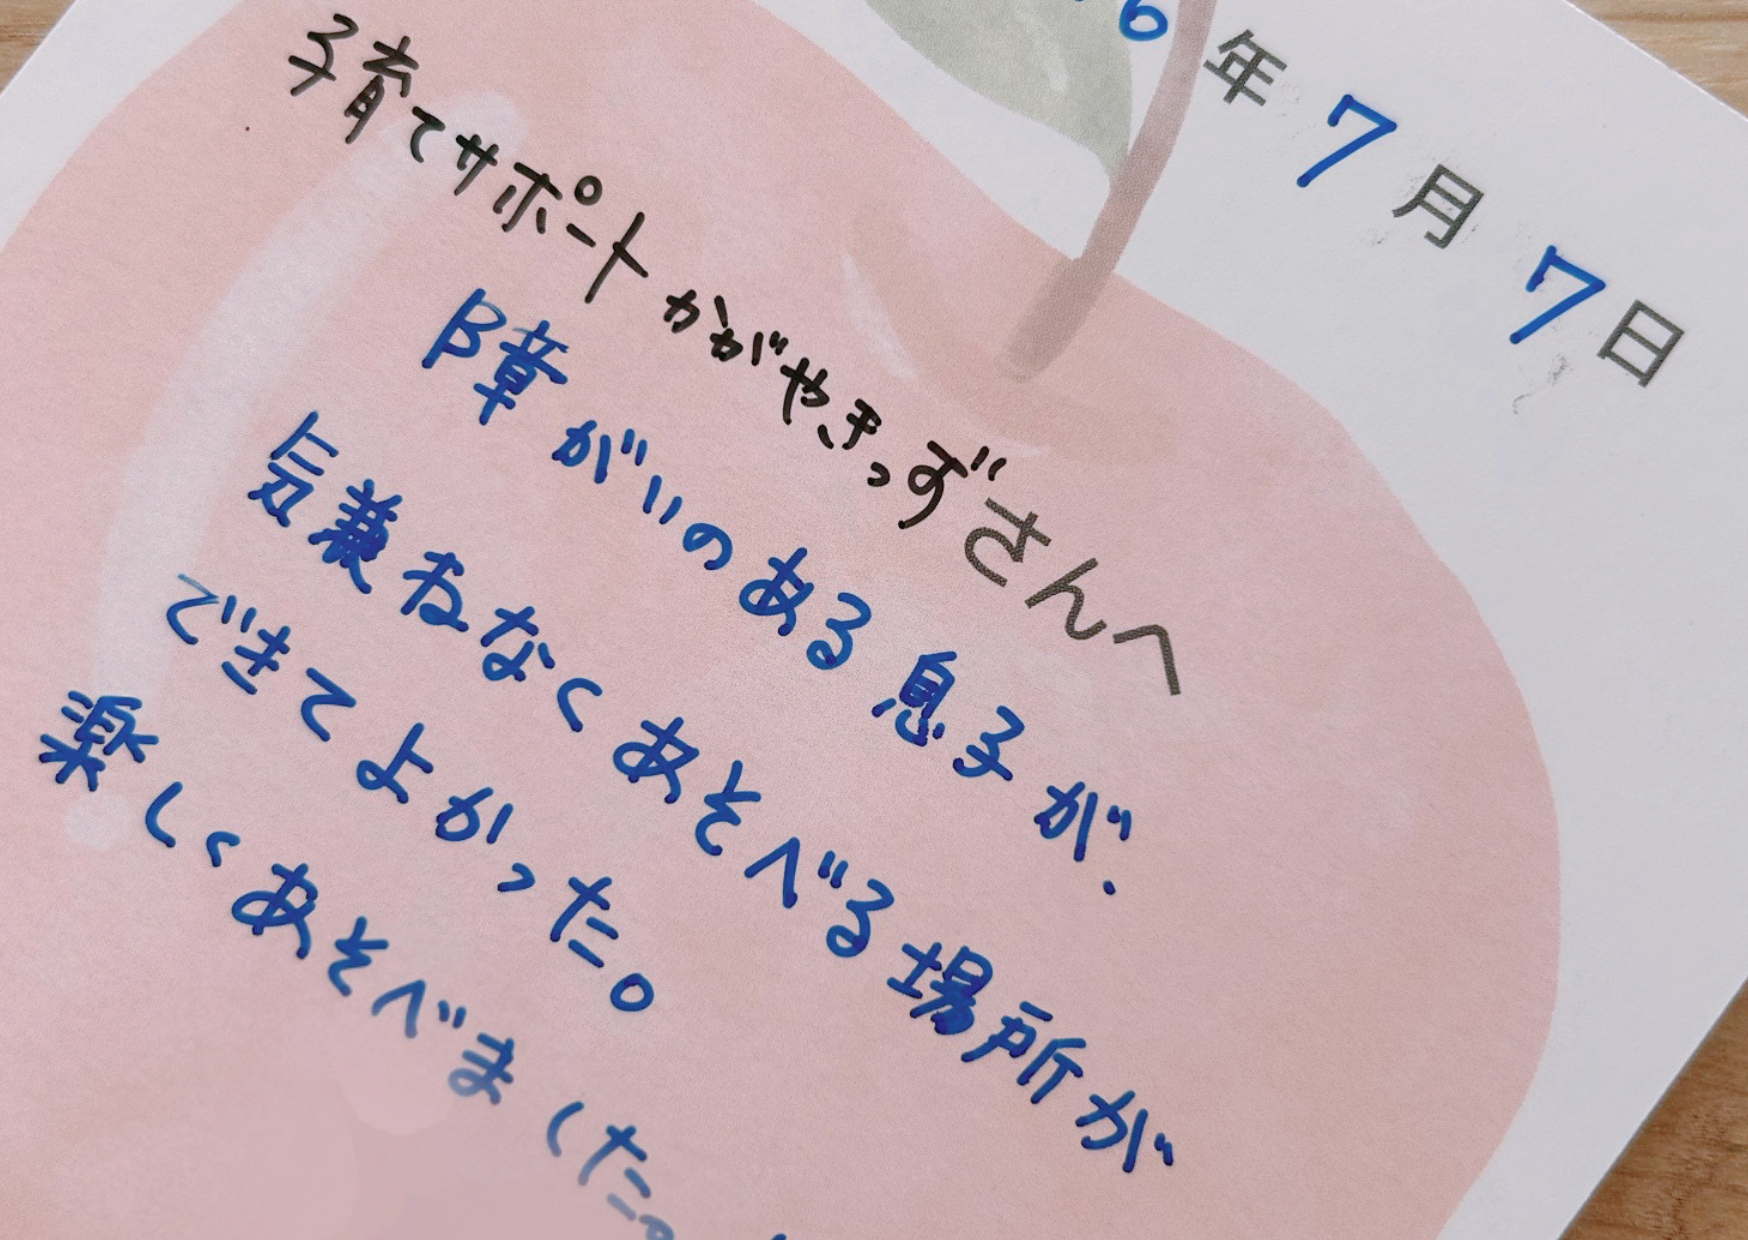 6年7月7日
子育てサポートかがやきっずさんへ
障がいのある息子が、
気兼ねなくあそべる場所が
できてよかった。
楽しくあそべました。